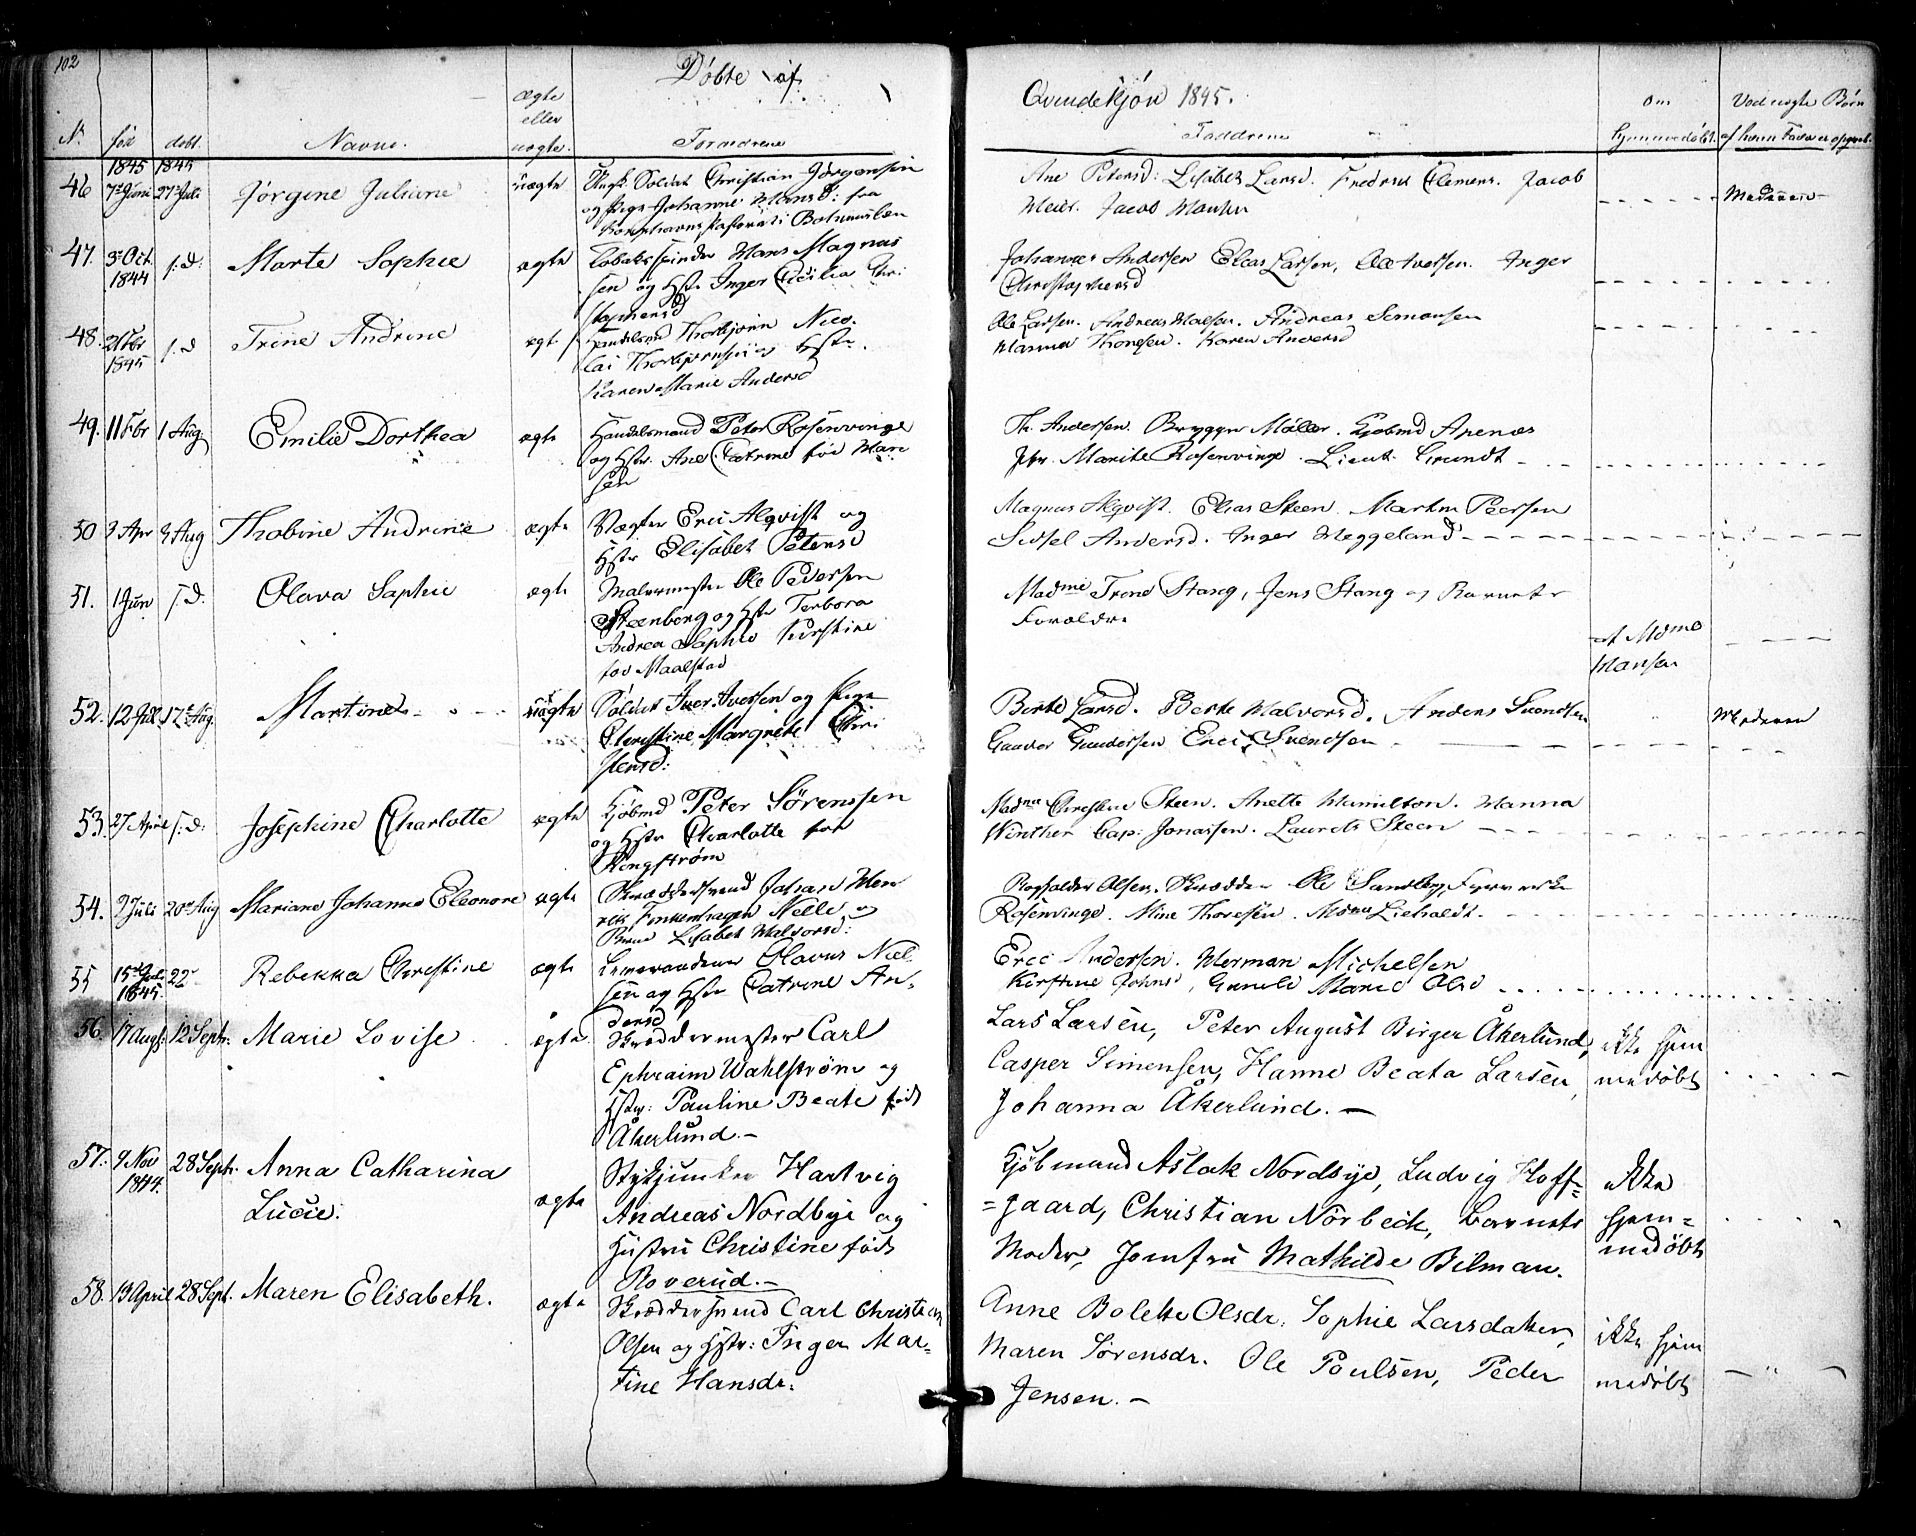 102
Døbte af
Qvindekjøn 1845.
No. fød døbt. Navne. ægte eller uægte. Forældrene Faddrene om hjemmedøbt. Ved uægte Børn af hvem Fader er opgivet.
1845 1845
46 7de Juni 27de Juli Jørgine Juliane uægte Soldat Christian Jørgensen
og Pige Johanne Hansd: fra
Ane Petersd: Lisabet Larsd. Fredrik Clemens. Jacob
Meier. Jacob Moderen
47. 3die Oct. 1844 s.d. Marte Sophie ægte Tobakspinder Hans Magnus
sen og Hstr Inger Cecilia Chri
stophersd
Johannes Andersen Elias Larsen, Inger
Christophersd
48. 21 Fbr 1845 s.d Trine Andrine ægt Handelsmd Thorbjørn Nico
lai Thorbjørnsen og Hstr.
Karen Marie Andersd
Ole Larsen. Andreas Andreas Simonsen
Hanna Thoresen. Karen Andersd
49. 11 Fbr 1 Aug Emilie Dorthea ægte Handelsmand Peter Rosenvinge
og Hstr. Ane Catrine fød Han
sen
Th. Andersen. Brygger Møller. Kjøbmd Arenas
Jfr. Marite Rosenvinge. Lieut. Grundt
50 3 Apr 3 Aug Thobine Andrine ægte Vægter Eric Alqvist og
Hstr Elisabet Petersd
Magnus Alqvist. Elias Steen. Martin Peersen
Sidsel Andersd. Inger Heggeland
51. 1 Jun s.d. Olava Sophie ægte Malermester Ole Pedersen
Steenberg og Hstr Terbora
Andrea Sophie Kirstine
fød Maalstad
Madme Trine Stang, Jens Stang og Barnets
Forældre
af Mdme
Hansen
52. 12 Juli 17de Aug. Martine uægte Soldat Iver Iversen og Pige
Christine Margrete Chri
stensd:
Berte Larsd. Berte Halvorsd. Anders Svendsen
Gunder Gundersen Eric Svendsen
Moderen
53. 27 April s.d: Josephine Charlotte ægte Kjøbmd Peter Sørenssen
og Hstr Charlotte fød
Kongstrøm
Madme Christine Steen. Anette Hamilton. Hanna
Winther Cap: Jonassen. Laurets Steen
54. 2 Juli 20de Aug Mariane Johanne Eleonore ægte Skræddersvend Johan Hen
rik Finkenhagen Nelle og
Lisabet Halvorsd:
Olsen. Skrædder Ole Sandby,
Rosenvinge. Mine Thoresen. Mdme Lieholdt.
55 15de Juli 1845. 22de Rebekka Christine ægte Olavus Niel
sen og Hstr Catrine An
dersd
Eric Andersen. Herman Michelsen
Kirstine Johnsd, Gunild Marie Olsd
56. 17 Augs: 12 Septr: Marie Lovise ægte. Skræddermester Carl
Ephraim Wahlstrøm og
Hstr: Pauline Beate født
Åkerlund. —
Lars Larsen, Peter August Birger Åkerlund,
Casper Simensen, Hanne Beata Larsen,
Johanna Åkerlund. —
ikke hjem
medøbt
57. 9 Nov 1844. 28 Septr. Anna Catharina
Lucie.
ægte Stykjunker Hartvig
Andreas Nordbye og
Hustru Christine født
Roverud. —
Kjøbmand Aslak Nordbye, Ludvig Hoff=
=gaard, Christian Nørbeck, Barnets
Moder, Jomfru Mathilde Bilman.
ikke
hjem=
medøbt
58. 13 April 28 Sept. Maren Elisabeth. ægte Skræddersvend Carl Christian
Olsen og Hstr: Inger Mar=
tine Hansdr.
Anne Bolette Olsdr. Sophie Larsdatter,
Maren Sørensdr. Ole Poulsen, Peder
Jensen. —
ikke hjem
medøbt